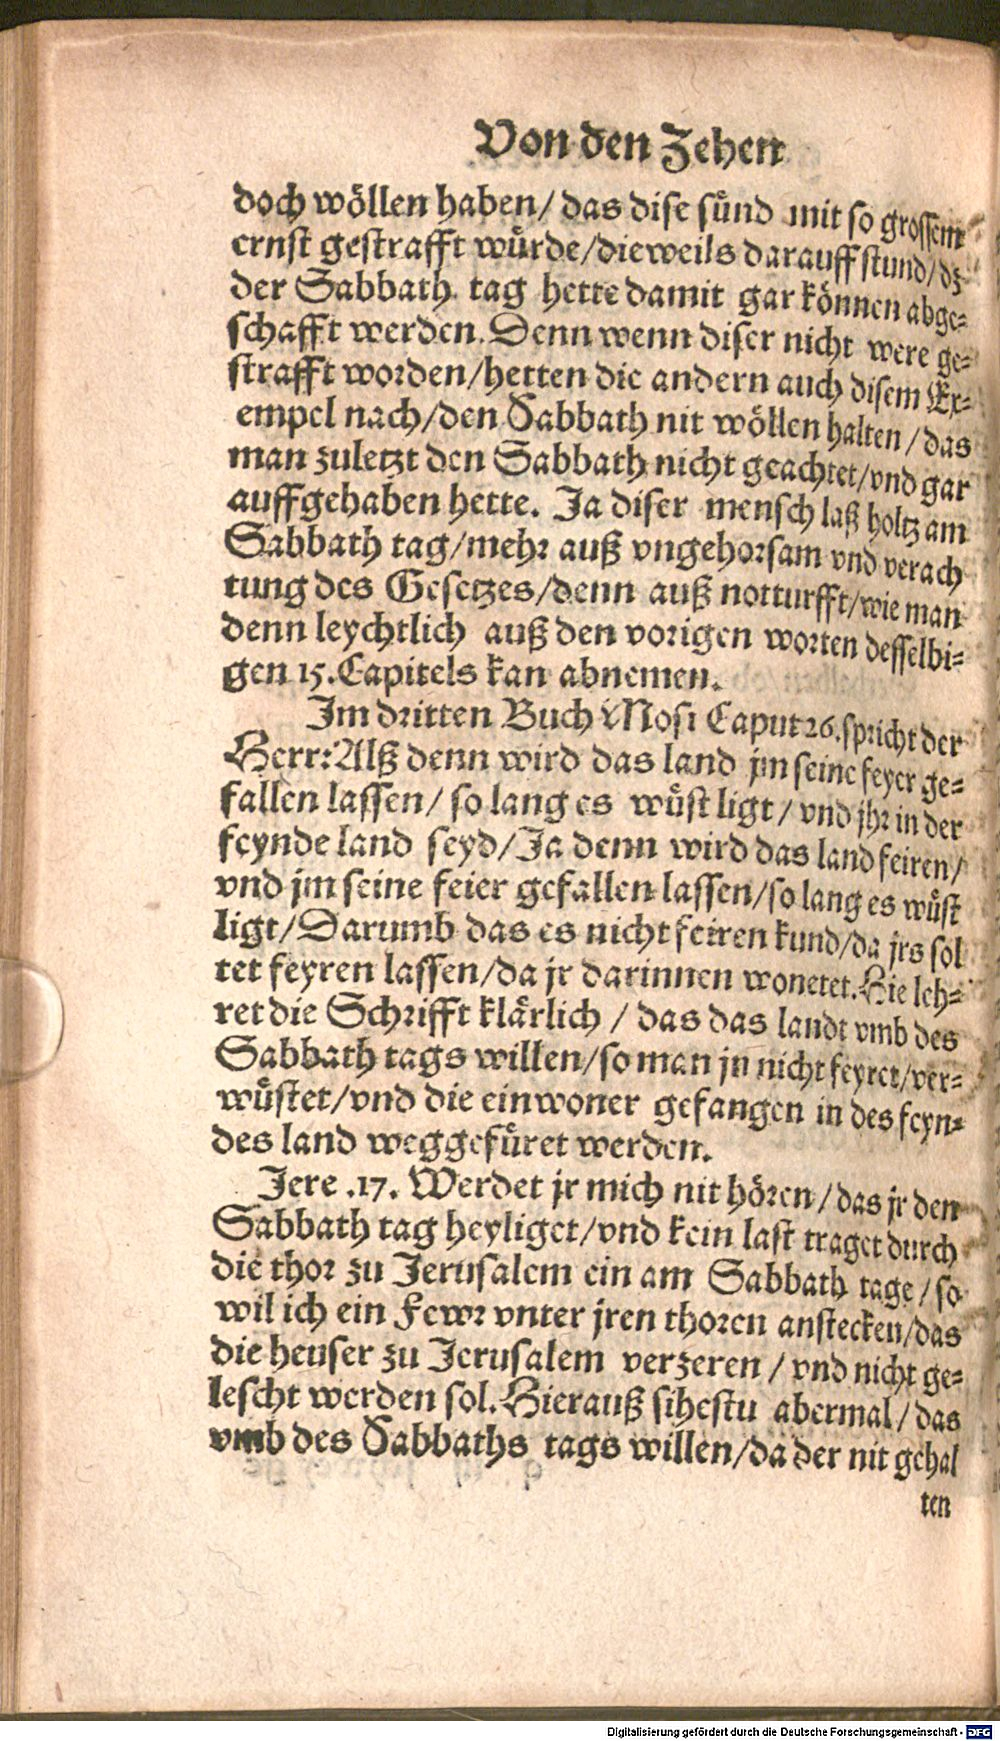 Von den Zehen
doch wöllen haben/ das dise sünd mit so grossem
ernst gestrafft würde/dieweils darauff stund/dz
der Sabbath tag hette damit gar können abge-
schafft werden. Denn wenn diser nicht were ge-
strafft worden/hetten die andern auch disem Ex-
empel nach/den Sabbath nit wöllen halten/das
man zuletzt den Sabbath nicht geachtet/vnd gar
auffgehaben hette. Ja diser mensch laß holtz am
Sabbath tag/mehr auß vngehorsam vnd verach
tung des Gesetzes/denn auß notturfft/wie man
denn leychtlich auß den vorigen worten desselbi-
gen 15. Capitels kan abnemen.
Im dritten Buch Mosi Caput 26. spricht der
Herr: Alß denn wird das land jm seine feyer ge-
fallen lassen/ so lang es wüst ligt/ vnd jhr in der
feynde land seyd/Ja denn wird das land feiren/
vnd jm seine feier gefallen lassen/so lang es wüst
ligt/Darumb das es nicht feiren kund/da jrs sol
tet feyren lassen/da jr darinnen wonetet. Hie leh-
ret die Schrifft klärlich/ das das landt vmb des
Sabbath tags willen/so man jn nicht feyret/ver-
wüstet/vnd die einwoner gefangen in des feyn-
des land weggefüret werden.
Jere .17. Werdet jr mich nit hören/das jr den
Sabbath tag heyliget/vnd kein last traget durch
die thor zu Jerusalem ein am Sabbath tage/so
wil ich ein Fewr vnter jren thoren anstecken/das
die heuser zu Jerusalem verzeren/ vnd nicht ge-
lescht werden sol. Hierauß sihestu abermal/das
vmb des Sabbaths tags willen/da der nit gehal
ten
Digitalisierung gefördert durch die Deutsche Forschungsgemeinschaft - DFG